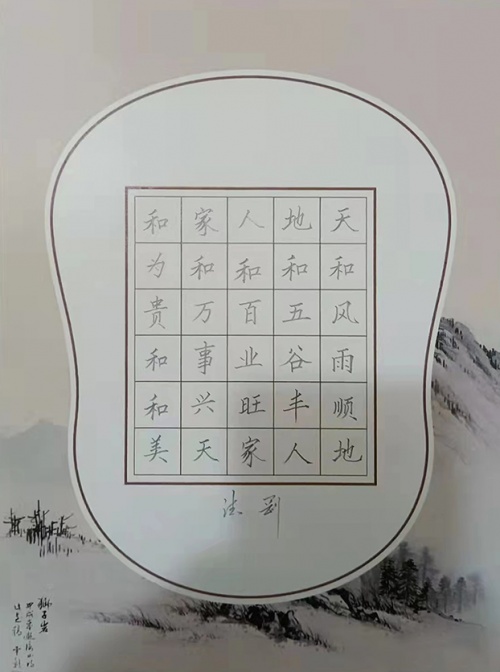 天和风雨顺地
地和五谷丰人
人和百业旺家
家和万事兴天
和为贵和和美